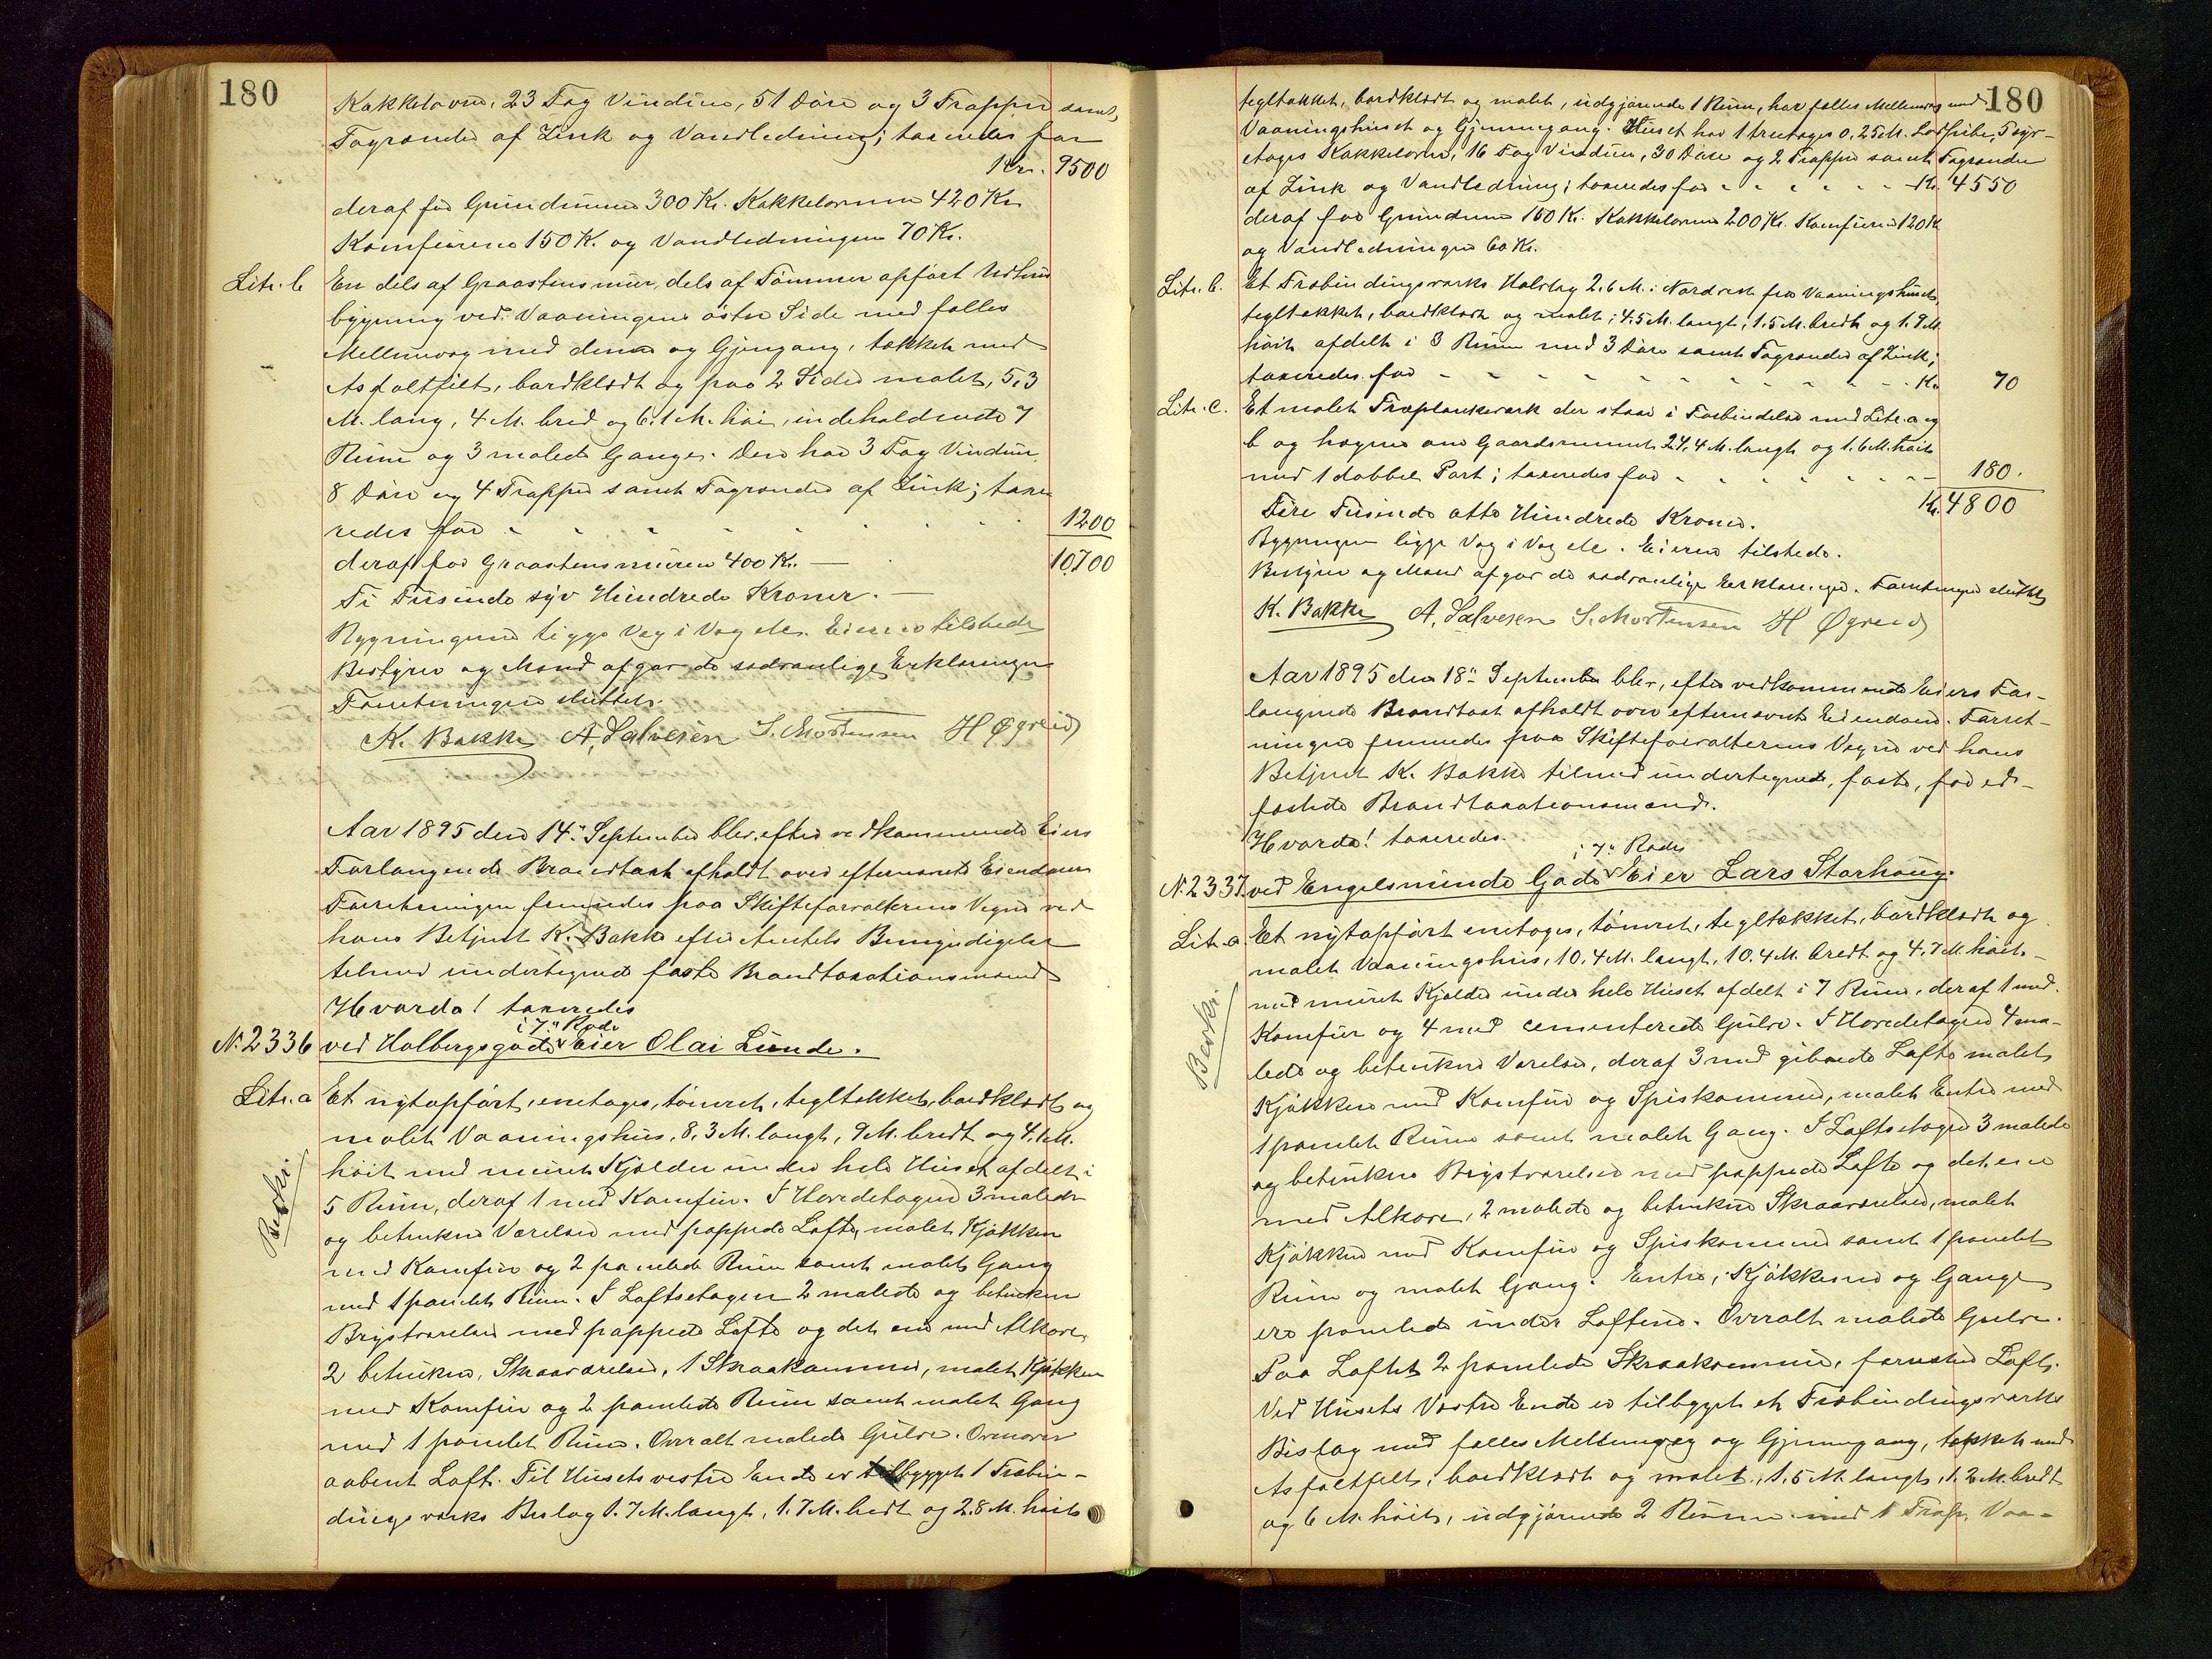 180
Kakkelovne, 23 Fag Vinduer, 51 Døre og 3 Trapper samt
Tagrender af Zink og Vandledning; taxeredes for
Kr. 9500
deraf for Grundmuren 300 Kr. Kakkelovnene 420 Kr.
Komfurene 150 K. og Vandledningen 70 Kr.
Litr. b En dels af Graastensmur, dels af Tømmer opført Udhus
bygning ved Vaaningens østre Side med fælles
Mellemvæg med denne og Gjengang, tækket med
Asfaltfilt, bordklædt og paa 2 Sider malet, 5,3
M. lang, 4 M. bred og 6,1 M. høi, indeholdende 7
Rum og 3 malede Gange. Den har 3 Fag Vinduer,
8 Døre og 4 Trapper samt Tagrender af Zink; taxe
redes for 1200
deraf for Graastensmuren 400 Kr. — 10700
Ti Tusinde syv Hundrede Kroner. —
Bygningerne ligge Væg i Væg etc. Eieren tilstede
Bestyrer og Mænd afgav de sædvanlige Erklæringer
Forretningen sluttet.
K. Bakke A. Salvesen S. Mortensen H Øgreid
Aar 1895 den 14de September blev, efter vedkommende Eiers
Forlangende Brandtaxt afholdt over efternævnte Eiendom
Forretningen fremmedes paa Skifteforvalterens Vegne ved
hans Betjent K. Bakke efter Amtets Bemyndigelse
tilmed undertegnede faste Brandtaxationsmænd
Hvorda! taxeredes
i 7de Rode
N. 2336 ved Holbergsgade Eier Olai Lunde.
Litr. a Et nytopført, enetages, tømret, tegltækket, bordklædt og
malet Vaaningshus, 8,3 M. langt, 9 M. bredt og 4,1 M.
høit med muret Kjælder under hele Huset afdelt i
5 Rum, deraf 1 med Komfur. I Hovedetagen 3 malede
og betrukne Værelser med pappede Lofte, malet Kjøkken
med Komfur og 2 panelede Rum samt malet Gang
med 1 panelet Rum. I Loftsetagen 2 malede og betrukne
Brystværelser med pappede Lofte og det ene med Alkove,
2 betrukne, Skraaværelser, 1 Skraakammer, malet Kjøkken
med Komfur og 2 panelede Rum samt malet Gang
med 1 panelet Rum. Overalt malede Gulve. Ovenover
aabent Loft. Til Husets vestre Ende er tilbygget 1 Træbin-
dingsverks Bislag 1.7 M. langt, 1.7 M. bredt og 2.8 M. høit
180
tegltækket, bordklædt og malet, udgjørende 1 Rum, har fælles Mellemvæg med
Vaaningshuset og Gjennemgang. Huset har 1 treetages 0,25 M. Lodpibe, 5 syr-
etages Kakkelovne, 16 Fag Vinduer, 30 Døre og 2 Trapper samt Tagrender
af Zink og Vandledning; taxeredes for Kr. 4550
deraf for Grundmuren 150 Kr. Kakkelovnene 200 Kr. Komfurene 120 K
og Vandledningen 60 Kr.
Litr. b. Et Træbindingsverks Halvtag 2,6 M. i Nordvest fra Vaaningshuset,
tegltækket, bordklædt og malet; 4.5 M. langt, 1.5 M. bredt og 1.9 M.
høit afdelt i 3 Rum med 3 Døre samt Tagrender af Zink;
taxeredes for Kr. 70
Litr. c. Et malet Træplankeverk der staar i Forbindelse med Litr. a og
b og hegner om Gaardsrummet 24,4 M. langt og 1.6 M. høit
med 1 dobbel Port; taxeredes for 180.
Kr. 4800
Fire Tusinde otte Hundrede Kroner.
Bygningen ligge Væg i Væg etc. Eieren tilstede.
Bestyrer og Mænd afgav de sædvanlige Erklæringer. Forretningen sluttet
K. Bakke A. Salvesen S. Mortensen H Øgreid
Aar 1895 den 18de September blev, efter vedkommende Eiers For-
langende Brandtaxt afholdt over efternævnte Eiendom. Forret-
ningen fremmedes paa Skifteforvalterens Vegne ved hans
Betjent K. Bakke tilmed undertegnede, faste, for ed-
fæstede Brandtaxationsmænd.
Hvorda! taxeredes.
i 7de Rode
N. 2337 ved Engelsminde Gade Eier Lars Storhaug.
Litr. a Et nytopført enetages, tømret, tegltækket, bordklædt og
malet Vaaningshus, 10,4 M. langt, 10,4 M. bredt og 4,7 M. høit
med muret Kjælder under hele Huset afdelt i 7 Rum, deraf 1 med
Komfur og 4 med cementerede Gulve. I Hovedetagen 4 ma-
lede og betrukne Værelser, deraf 3 med gibsede Lofte malet
Kjøkken med Komfur og Spiskammer, malet Entre med
1 panelet Rum samt malet Gang. I Loftsetagen 3 malede
og betrukne Brystværelser med pappede Lofte og det ene
med Alkove, 2 malede og betrukne Skraaværelser, malet
Kjøkken med Komfur og Spiskammer samt 1 panelet
Rum og malet Gang. Entre, Kjøkkener og Gange
ere panelede under Loftene. Overalt malede Gulve.
Paa Loftet 2 panelede Skraakammer, forresten Loft.
Ved Husets Vestre Ende er tilbygget et Træbindingsverks
Bislag med fælles Mellemvæg og Gjennemgang, tækket med
Asfaltfilt, bordklædt og malet, 1.5 M. langt, 1.2 M. bredt
og 6 M. høit, udgjørende 2 Rum med 1 Trap. Vaa-